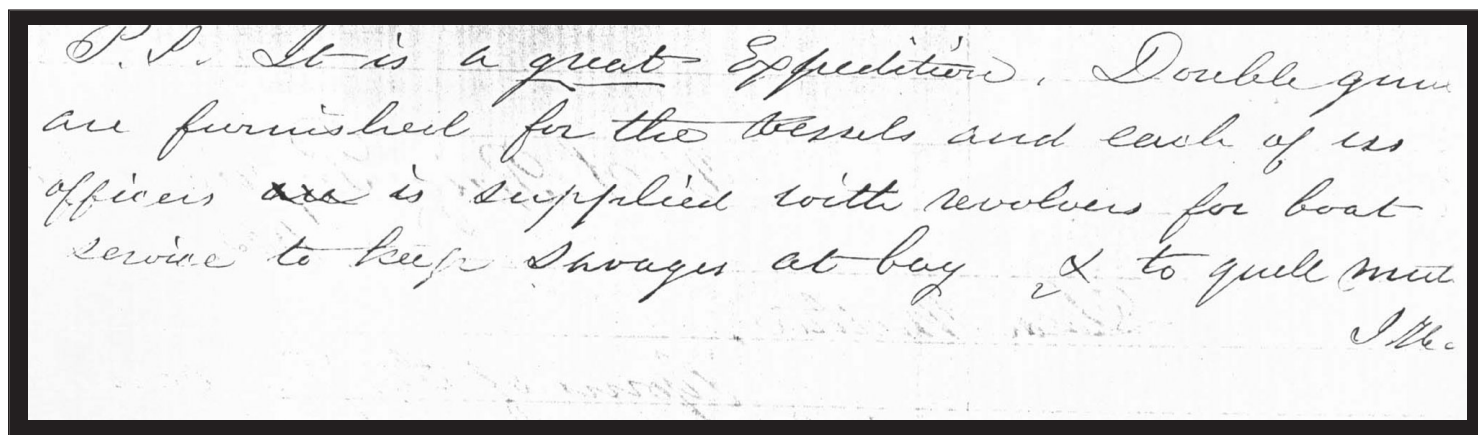 P.S. It is a great Expedition. Double guns
are furnished for the vessels and each of us
officers are is supplied with revolvers for boat
service to keep savages at bay & to quell mut